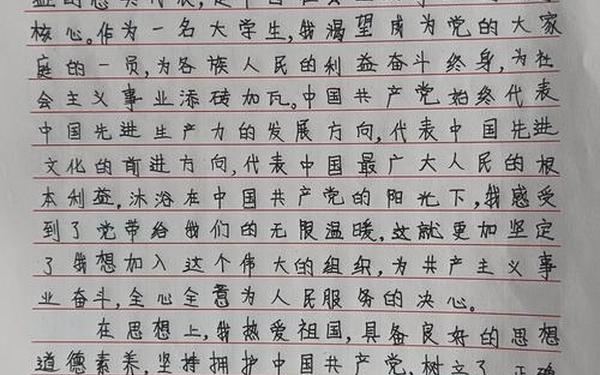 核心。作为一名大学生,我渴望成为党的大家
庭的一员,为各族人民的利益奋斗终身,为社
会主义事业添砖加瓦。中国共产党始终代表
中国先进生产力的发展方向,代表中国先进
文化的前进方向,代表中国最广大人民的根
本利益。沐浴在中国共产党的阳光下,我感受
到了党带给我们的无限温暖,这就更加坚定
了我想加入这个伟大的组织,为共产主义事
业奋斗,全心全意为人民服务的决心。
在思想上,我热爱祖国,具备良好的思想
道德素养,坚持拥护中国共产党,树立了正确